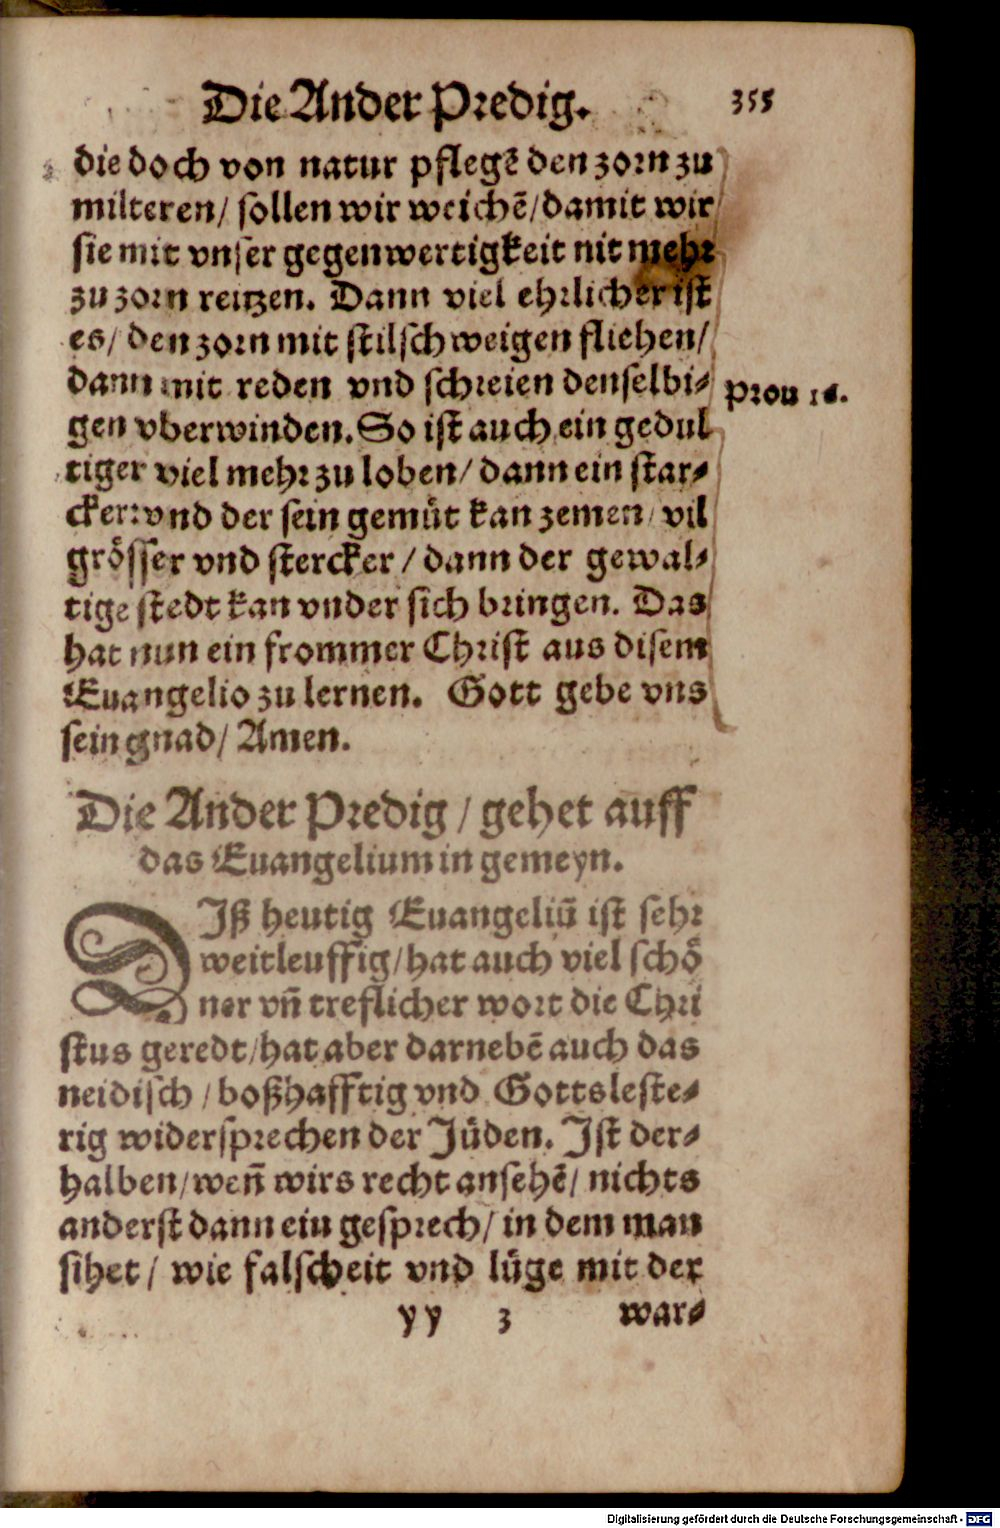 Die Ander Predig. 355
die doch von natur pflegē den zorn zu
milteren/ sollen wir weichē/damit wir
sie mit vnser gegenwertigkeit nit mehr
zu zorn reitzen. Dann viel ehrlicher ist
es/ den zorn mit stilschweigen fliehen/
dann mit reden vnd schreien denselbi⸗
gen vberwinden. So ist auch ein gedul
tiger viel mehr zu loben/ dann ein star⸗
cker: vnd der sein gemuͤt kan zemen/ vil
groͤsser vnd stercker/ dann der gewal⸗
tige stedt kan vnder sich bringen. Das
hat nun ein frommer Christ aus disem
Euangelio zu lernen. Gott gebe vns
sein gnad/ Amen.
Prou 16.
Die Ander Predig/ gehet auff
das Euangelium in gemeyn.
DIß heutig Euangeliū ist sehr
weitleuffig/hat auch viel schoͤ
ner vn̄ treflicher wort die Chri
stus geredt/hat aber darnebē auch das
neidisch/ boßhafftig vnd Gottsleste⸗
rig widersprechen der Juͤden. Ist der⸗
halben/wen̄ wirs recht ansehē/ nichts
anderst dann ein gesprech/ in dem man
sihet/ wie falscheit vnd luͤge mit der
yy 3 war⸗
Digitalisierung gefördert durch die Deutsche Forschungsgemeinschaft - DFG